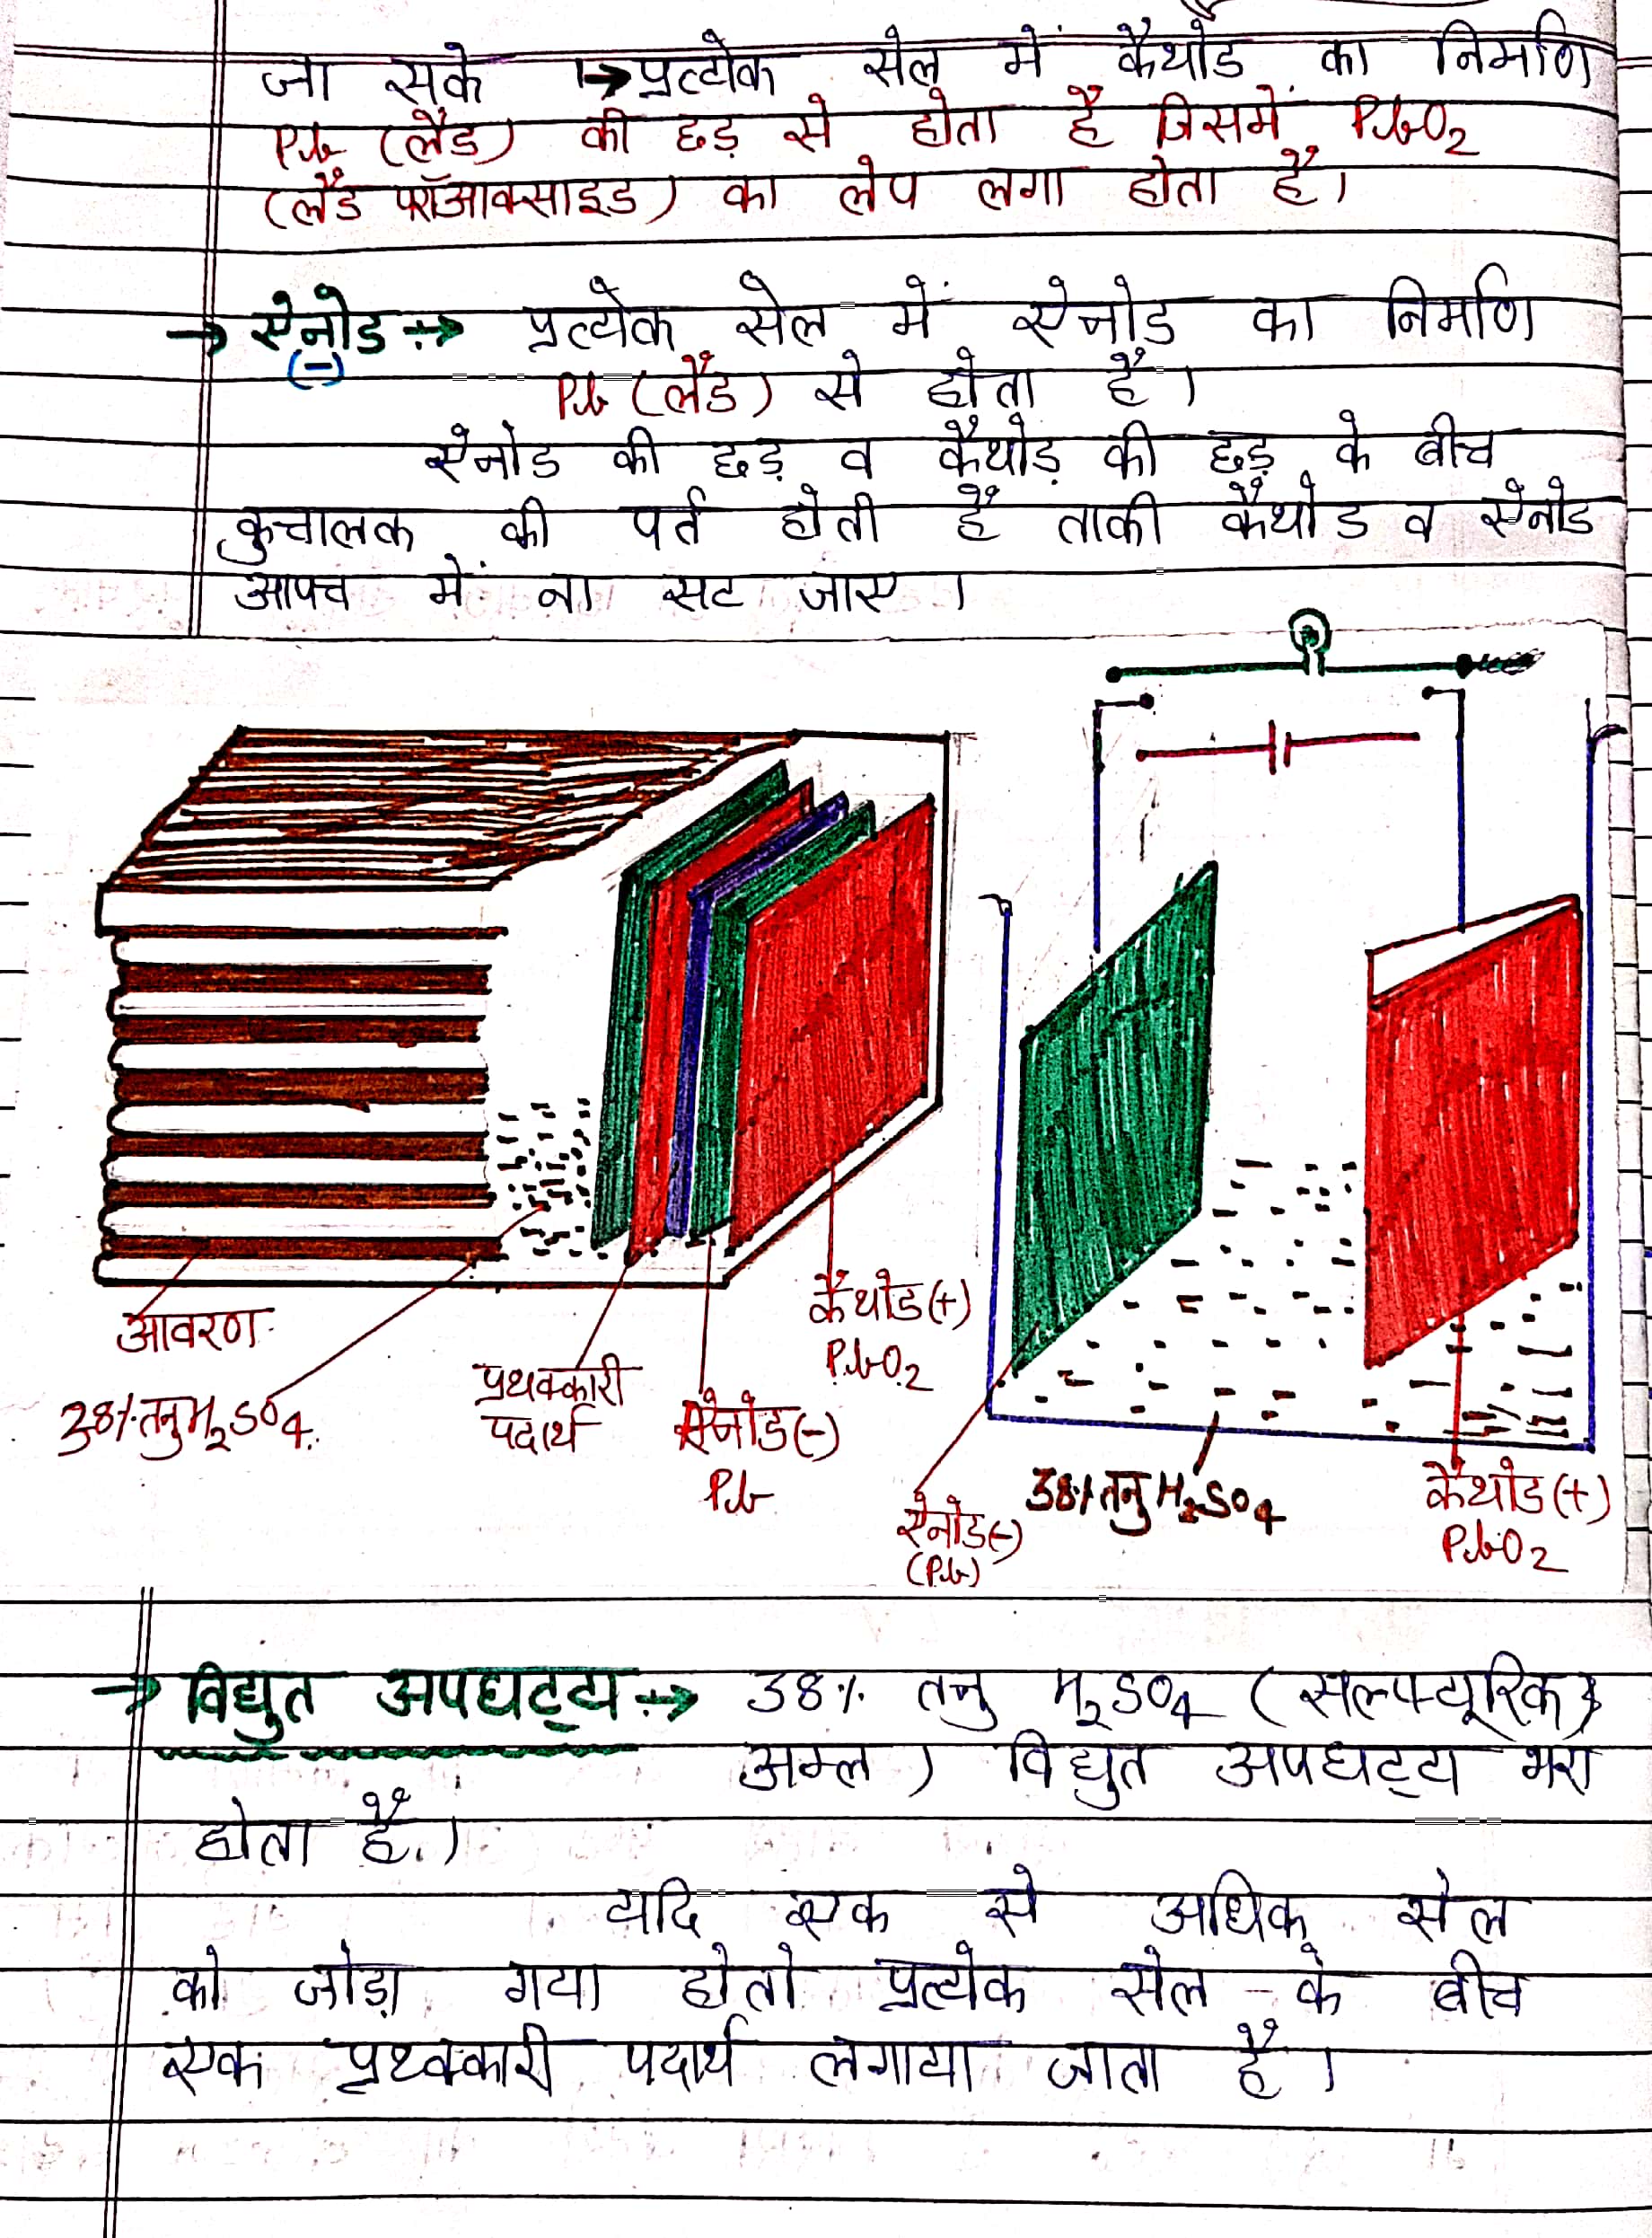 जा सके → प्रत्येक सेल में कैथोड का निर्माण
Pb (लैड) की छड़ से होता है जिसमें PbO2
(लैड परॉआक्साइड) का लेप लगा होता है।
→ ऐनोड → प्रत्येक सेल में ऐनोड का निर्माण
(-)
Pb (लैड) से होता है।
ऐनोड की छड़ व कैथोड़ की छड़ के बीच
कुचालक की पर्त होती है ताकी कैथोड व ऐनोड
आपच में ना सट जाए।
आवरण
38% तनु H2SO4
प्रथक्कारी
पदार्थ
ऐनोड(-)
Pb
कैथोड(+)
PbO2
ऐनोड(-)
(Pb)
38% तनु H2SO4
कैथोड(+)
PbO2
→ विद्युत अपघट्टय → 38% तनु H2SO4 (सल्फ्यूरिक
अम्ल) विद्युत अपघट्टय भरा
होता है।
यदि एक से अधिक सेल
को जोड़ा गया होतो प्रत्येक सेल के बीच
एक पृथ्क्कारी पदार्थ लगाया जाता है।